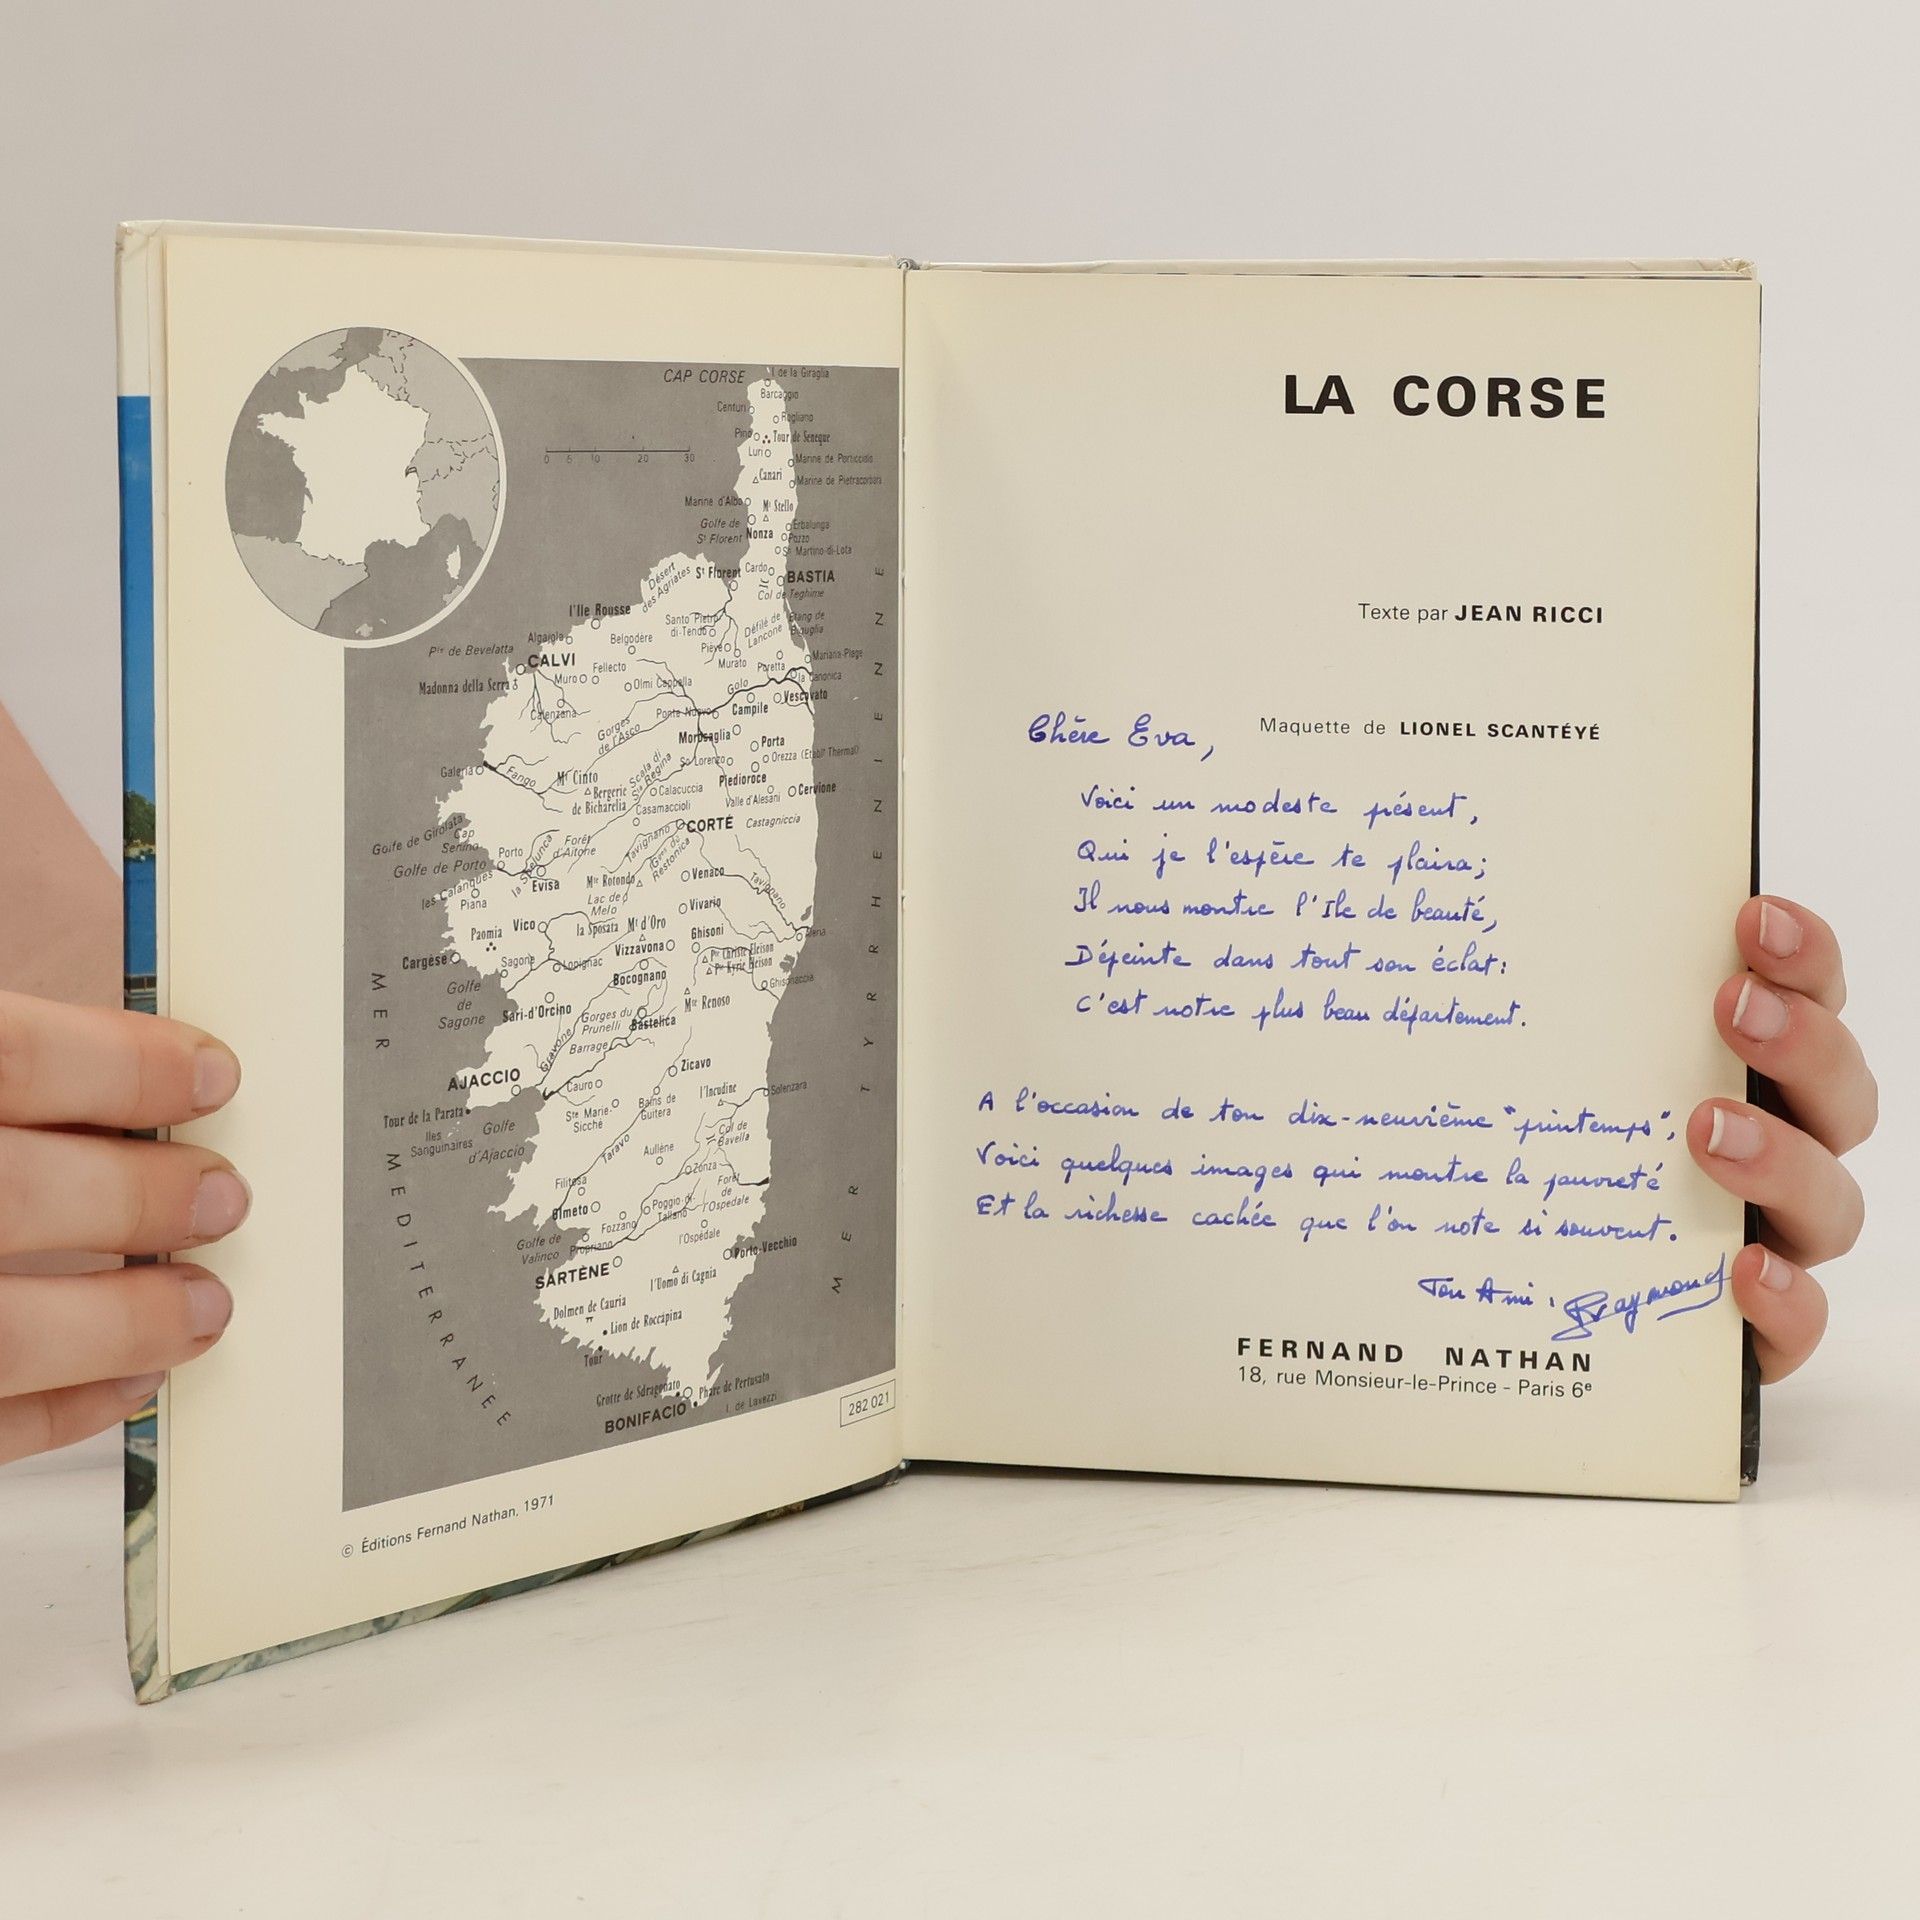 CAP CORSE
I. de la Giraglia
Barcaggio
Centuri
Rogliano
Pino
Tour de Seneque
Luri
Canari
Marine de Pietracorbara
Marine d'Albo
Mt Stello
Golfe de
St Florent
Nonza
Erbalunga
Pozzo
Sn Martino-di-Lota
0 5 10 20 30
Désert
des Agriates
St Florent
Cardo
BASTIA
Col de Teghime
l'Ile Rousse
Santo Pietro
di-Tenda
Défilé de
Lancone
Etang de
Biguglia
Algajola
Belgodère
Pieve
Murato
Mariana-Plage
Pte de Revelatta
CALVI
Fellecto
Poretta
la Canonica
Madonna della Serra
Muro
Olmi Cappella
Golo
Vescovato
Calenzana
Ponte Nuovo
Campile
Gorges
de l'Asco
Morosaglia
Porta
Orezza (Etablt Thermal)
Galeria
Fango
Mt Cinto
Scala di
Sta Regina
So Lorenzo
Piedicroce
Bergerie
de Bicharella
Calacuccia
Casamaccioli
Valle d'Alesani
Cervione
Golfe de Girolata
Cap
Senino
Golfe de Porto
Porto
la Spelunca
Forêt
d'Aitone
Tavignano
CORTÉ
Castagniccia
les Calanques
Piana
Evisa
Mte Rotondo
Gges du
Restonica
Venaco
Tavignano
Lac de
Melo
Vico
la Sposata
Mt d'Oro
Vivario
Paomia
Vizzavona
Ghisoni
Cargèse
Sagone
Lopignac
Pte Christe Eleison
Pte Kyrie Eleison
Bocognano
Ghisonaccia
Golfe
de
Sagone
Sari-d'Orcino
Mte Renoso
Gorges du
Prunelli
Bastelica
Gravone
Barrage
AJACCIO
Cauro
Zicavo
l'Incudine
Solenzara
Tour de la Parata
Iles
Sanguinaires
Golfe
d'Ajaccio
Ste Marie-
Sicché
Bains de
Guitera
Col de
Bavella
Taravo
Aullène
Zonza
Filitosa
Olmeto
Fozzano
Poggio-di-
Tallano
Forêt
de
l'Ospedale
Golfe de
Valinco
Propriano
l'Ospédale
SARTÈNE
Porto-Vecchio
l'Uomo di Cagnia
Dolmen de Cauria
Lion de Roccapina
Tour
Grotte de Sdragonato
Phare de Pertusato
BONIFACIO
I. de Lavezzi
MER MEDITERRANEE
MER TYRHENIENNE
282 021
© Éditions Fernand Nathan, 1971
LA CORSE
Texte par JEAN RICCI
Maquette de LIONEL SCANTÉYÉ
Chère Eva,
Voici un modeste présent,
Qui je l'espère te plaira;
Il nous montre l'Ile de beauté,
Dépeinte dans tout son éclat:
C'est notre plus beau département.
A l'occasion de ton dix-neuvième "printemps",
Voici quelques images qui montre la pauvreté
Et la richesse cachée que l'on note si souvent.
Ton Ami : Raymond
FERNAND NATHAN
18, rue Monsieur-le-Prince - Paris 6e